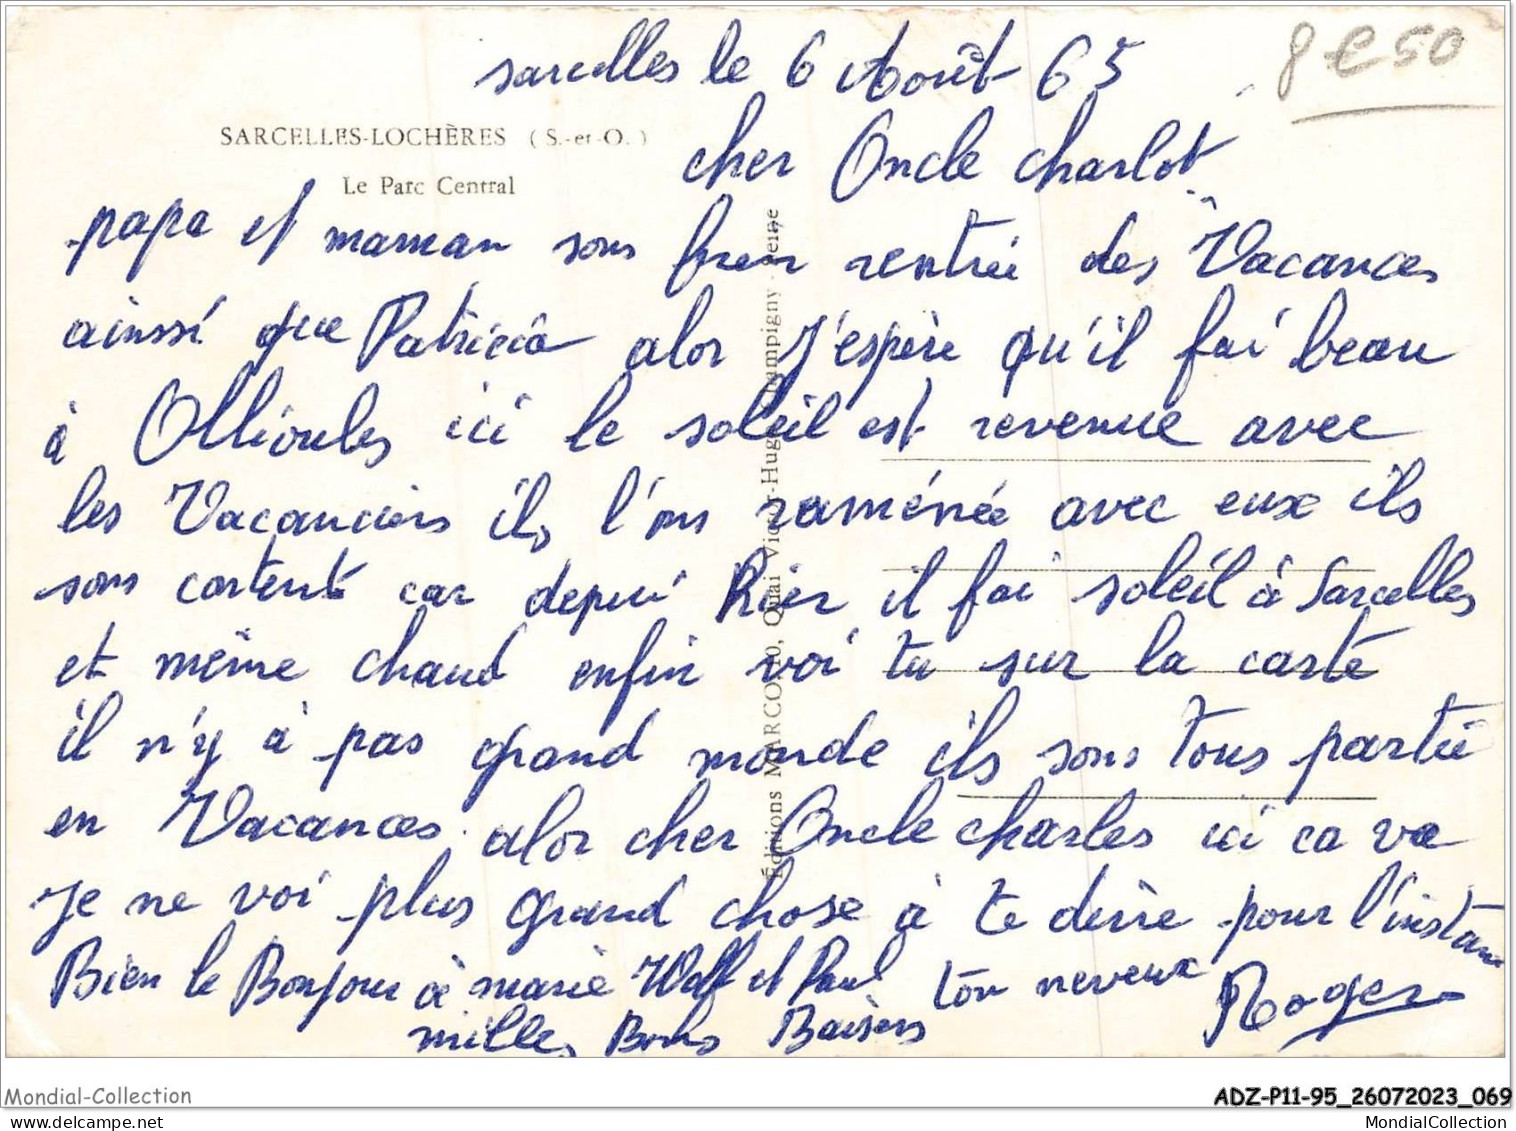 sarcelles le 6 Août 65
8 € 50
SARCELLES-LOCHÈRES (S.-et-O.)
Le Parc Central
cher Oncle charlot
papa et maman sons bien rentrée des Vacances
ainssi que Patricia alor J'espère qu'il fai beau
à Ollioules ici le soleil est revenue avec
les Vacanciers ils l'ons raménée avec eux ils
sons contents car depui hier il fai soleil à Sarcelles
et même chaud enfin voi tu sur la carte
il n'y à pas grand monde ils sons Tous partie
en Vacances. alor cher Oncle charles ici ca va
Je ne voi plus grand chose à te dirre pour l'instans
Bien le Bonjour à marie Wolf et Paul ton neveux Roger
milles Bons Baisers
Éditions MARCO, 10, Quai Victor-Hugo, Champigny - Seine
Mondial-Collection
ADZ-P11-95_26072023_069
delcampe.net
MondialCollection